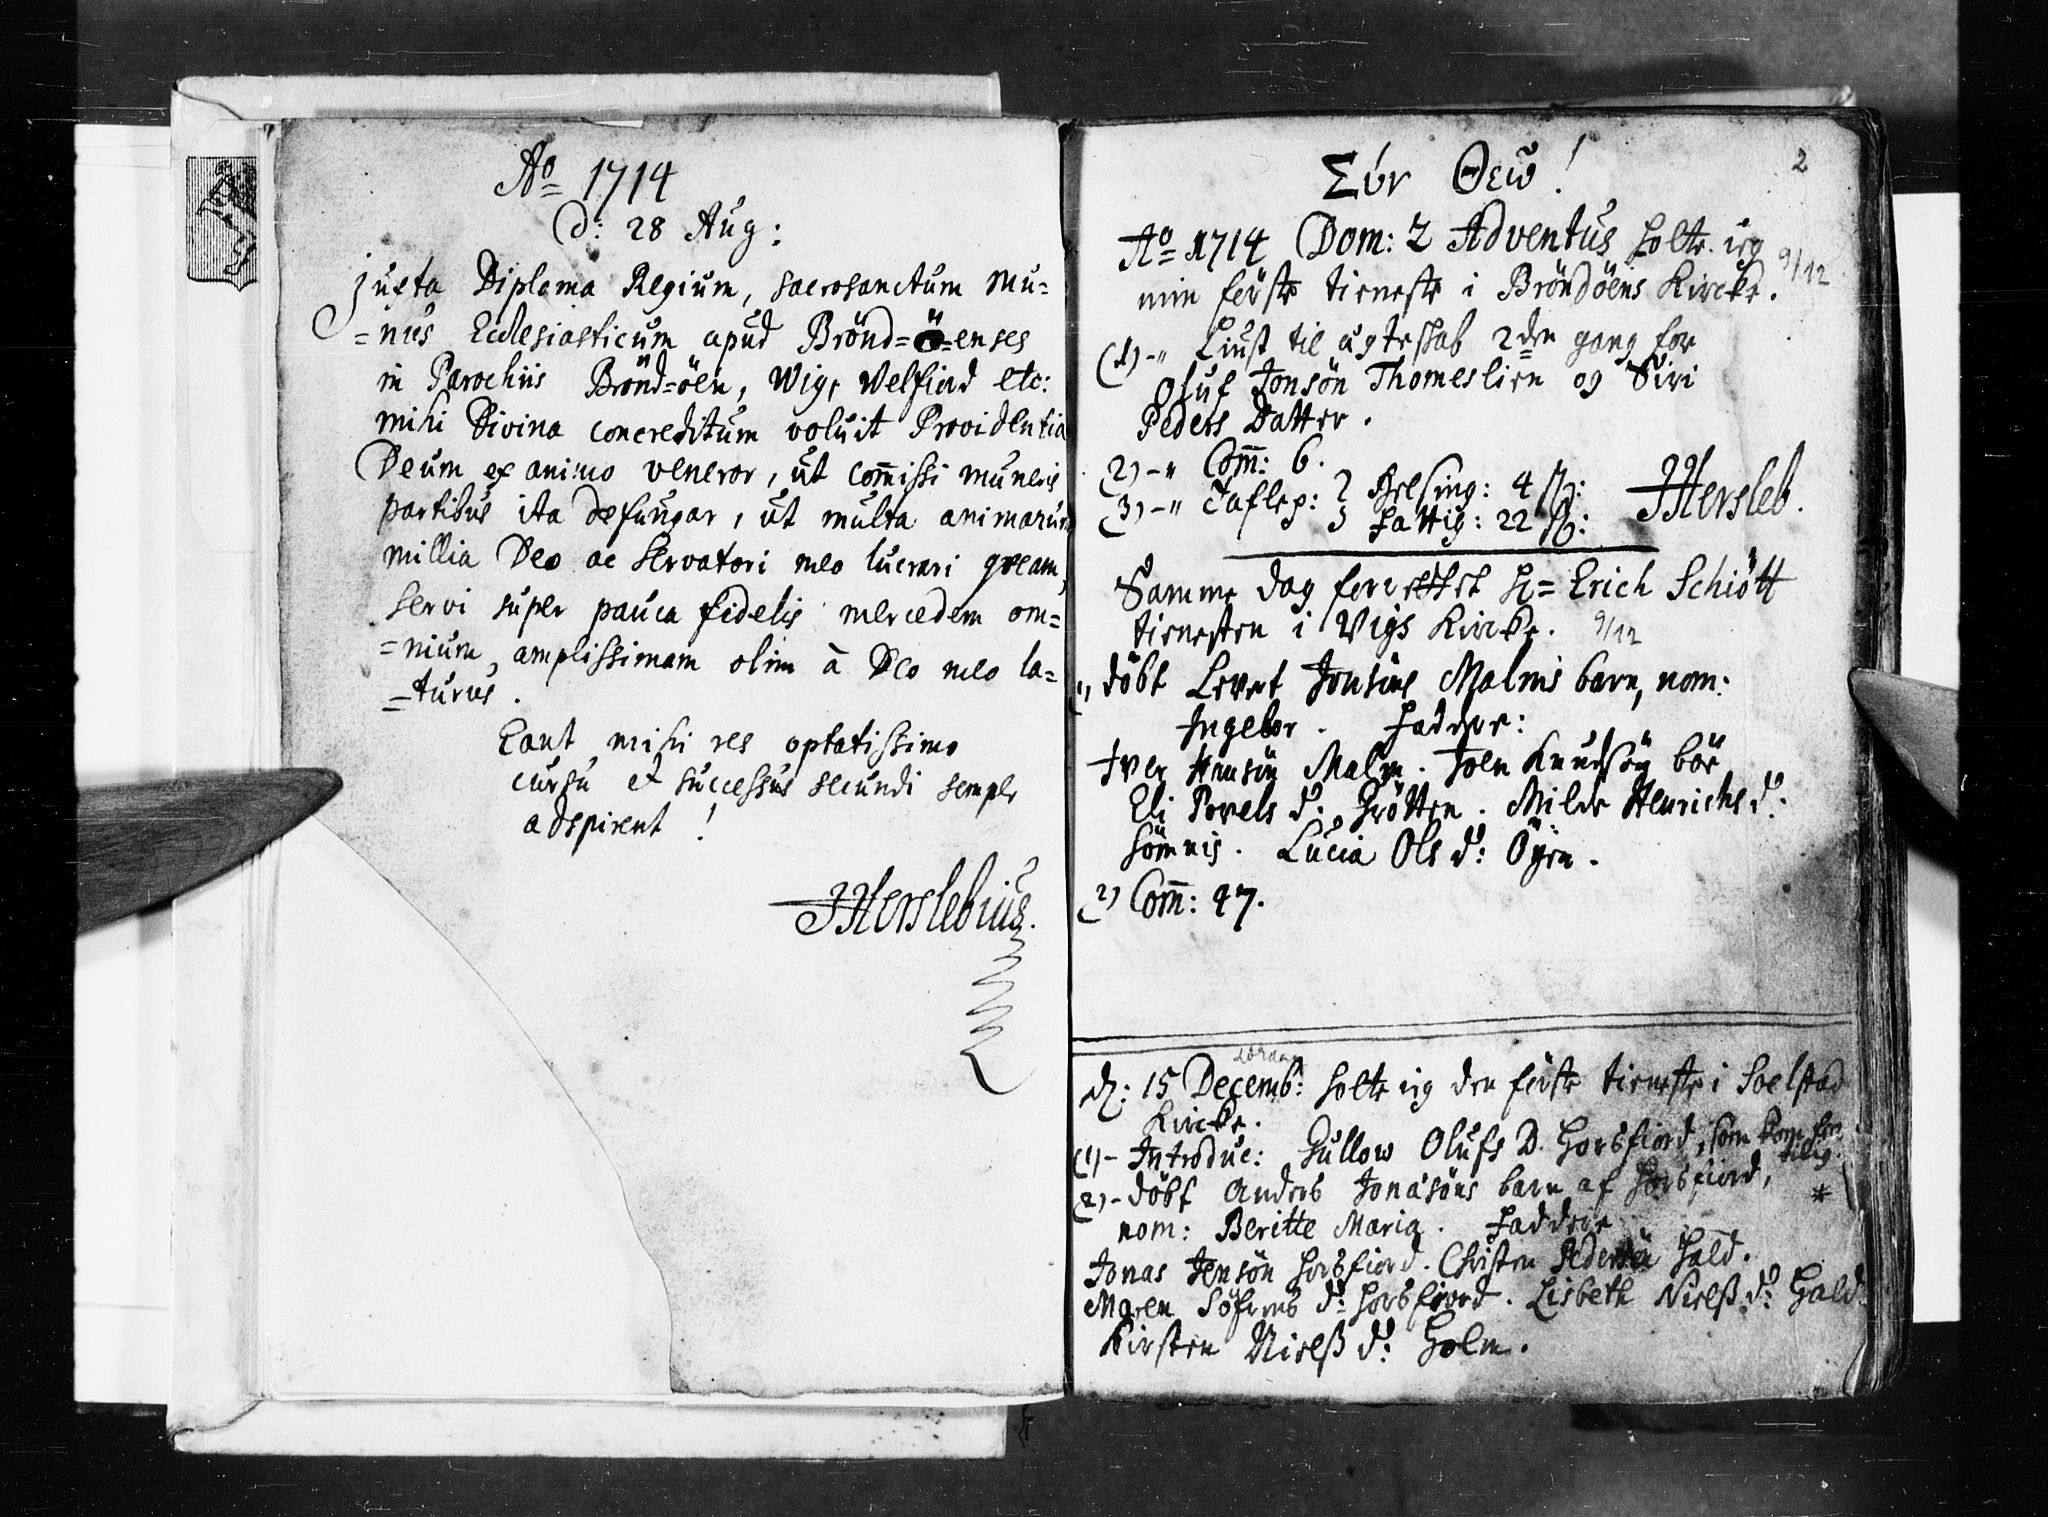 Aō 1714
d: 28 Aug:
Juxta Diploma Regium, sacrosanctum mu=
=nus Ecclesiasticum apud Brönd=ö=enses
in Parochiis Brönd=öen, Wig, Welfiord etc:
mihi Divina concreditum voluit Providentia
Deum ex animo veneror, ut com̄issi muneris
partibus ita defungar, ut multa animarum
millia Deo ac Servatori meo lucrari qveam,
servi super pauca fidelis mercedem om=
=nium, amplissimam olim à Deo meo la=
=turus.
Eant mihi res optatissimo
cursu et successus secundi semper
adspirent!
JHerslebius.
2
Σύν Θεῶ!
Aō 1714 Dom: 2 Adventus holte ieg
9/12
min förste tieneste i Bröndöens Kircke.
(1) -" Liust til ægteskab 2den gang for
Oluf Jonsön Thomeslien og Siri
Peders Datter.
2) -" Com̄: 6.
(3) -" Taflep: Helsing: 4 ß:
fattig: 22 ß:
JHersleb.
Samme dag forrettet H= Erich Schiött
tienesten i Vigs Kircke. 9/12
1) döbt Levet Jonsöns Malmis barn, nom:
Ingebor. Faddere:
Iver Jensön Malm. Joen Knudsön böe
Eli Povels d: Grötten. Milde Henrichs d:
Sömnis. Lucia Ols d: Öyen.
2) Com̄: 47.
lördag
d: 15 Decemb: holte ieg den förste tieneste i Soelstad
Kircke.
(1) - Introduc: Gullow Olufs D. Horsfiord, som kom for
tilig.
2) - döbt Anders Jonasöns barn af Horsfiord, *
nom: Beritte Maria. Faddere
Jonas Jensön Horsfiord. Christen Pedersön Hald.
Maren Söfrens d: Horsfiord. Lisbeth Nielß d: Hald
Kirsten Nielß d: Holm.